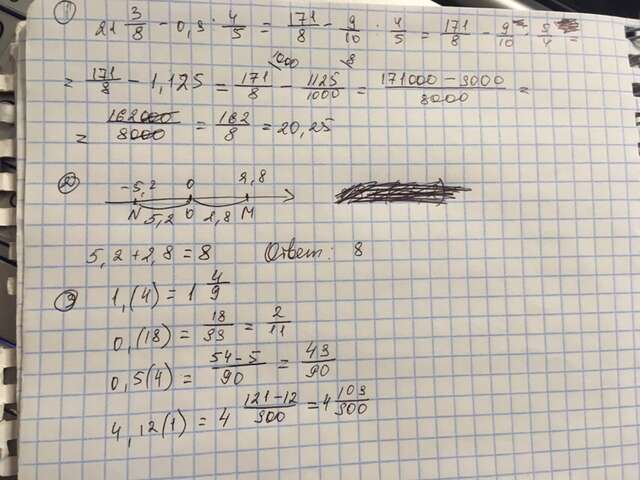 ① 21 3/8 - 0,9 · 4/5 = 171/8 - 9/10 · 4/5 = 171/8 - 9/10 · 5/4 =
= 171/8 - 1,125 = 171/8 - 1125/1000 = (171000 - 9000)/8000 =
= 162000/8000 = 162/8 = 20,25
② -5,2 0 2,8
N 5,2 0 2,8 M
5,2 + 2,8 = 8 Ответ: 8
③ 1,(4) = 1 4/9
0,(18) = 18/99 = 2/11
0,5(4) = (54-5)/90 = 49/90
4,12(1) = 4 (121-12)/900 = 4 109/900